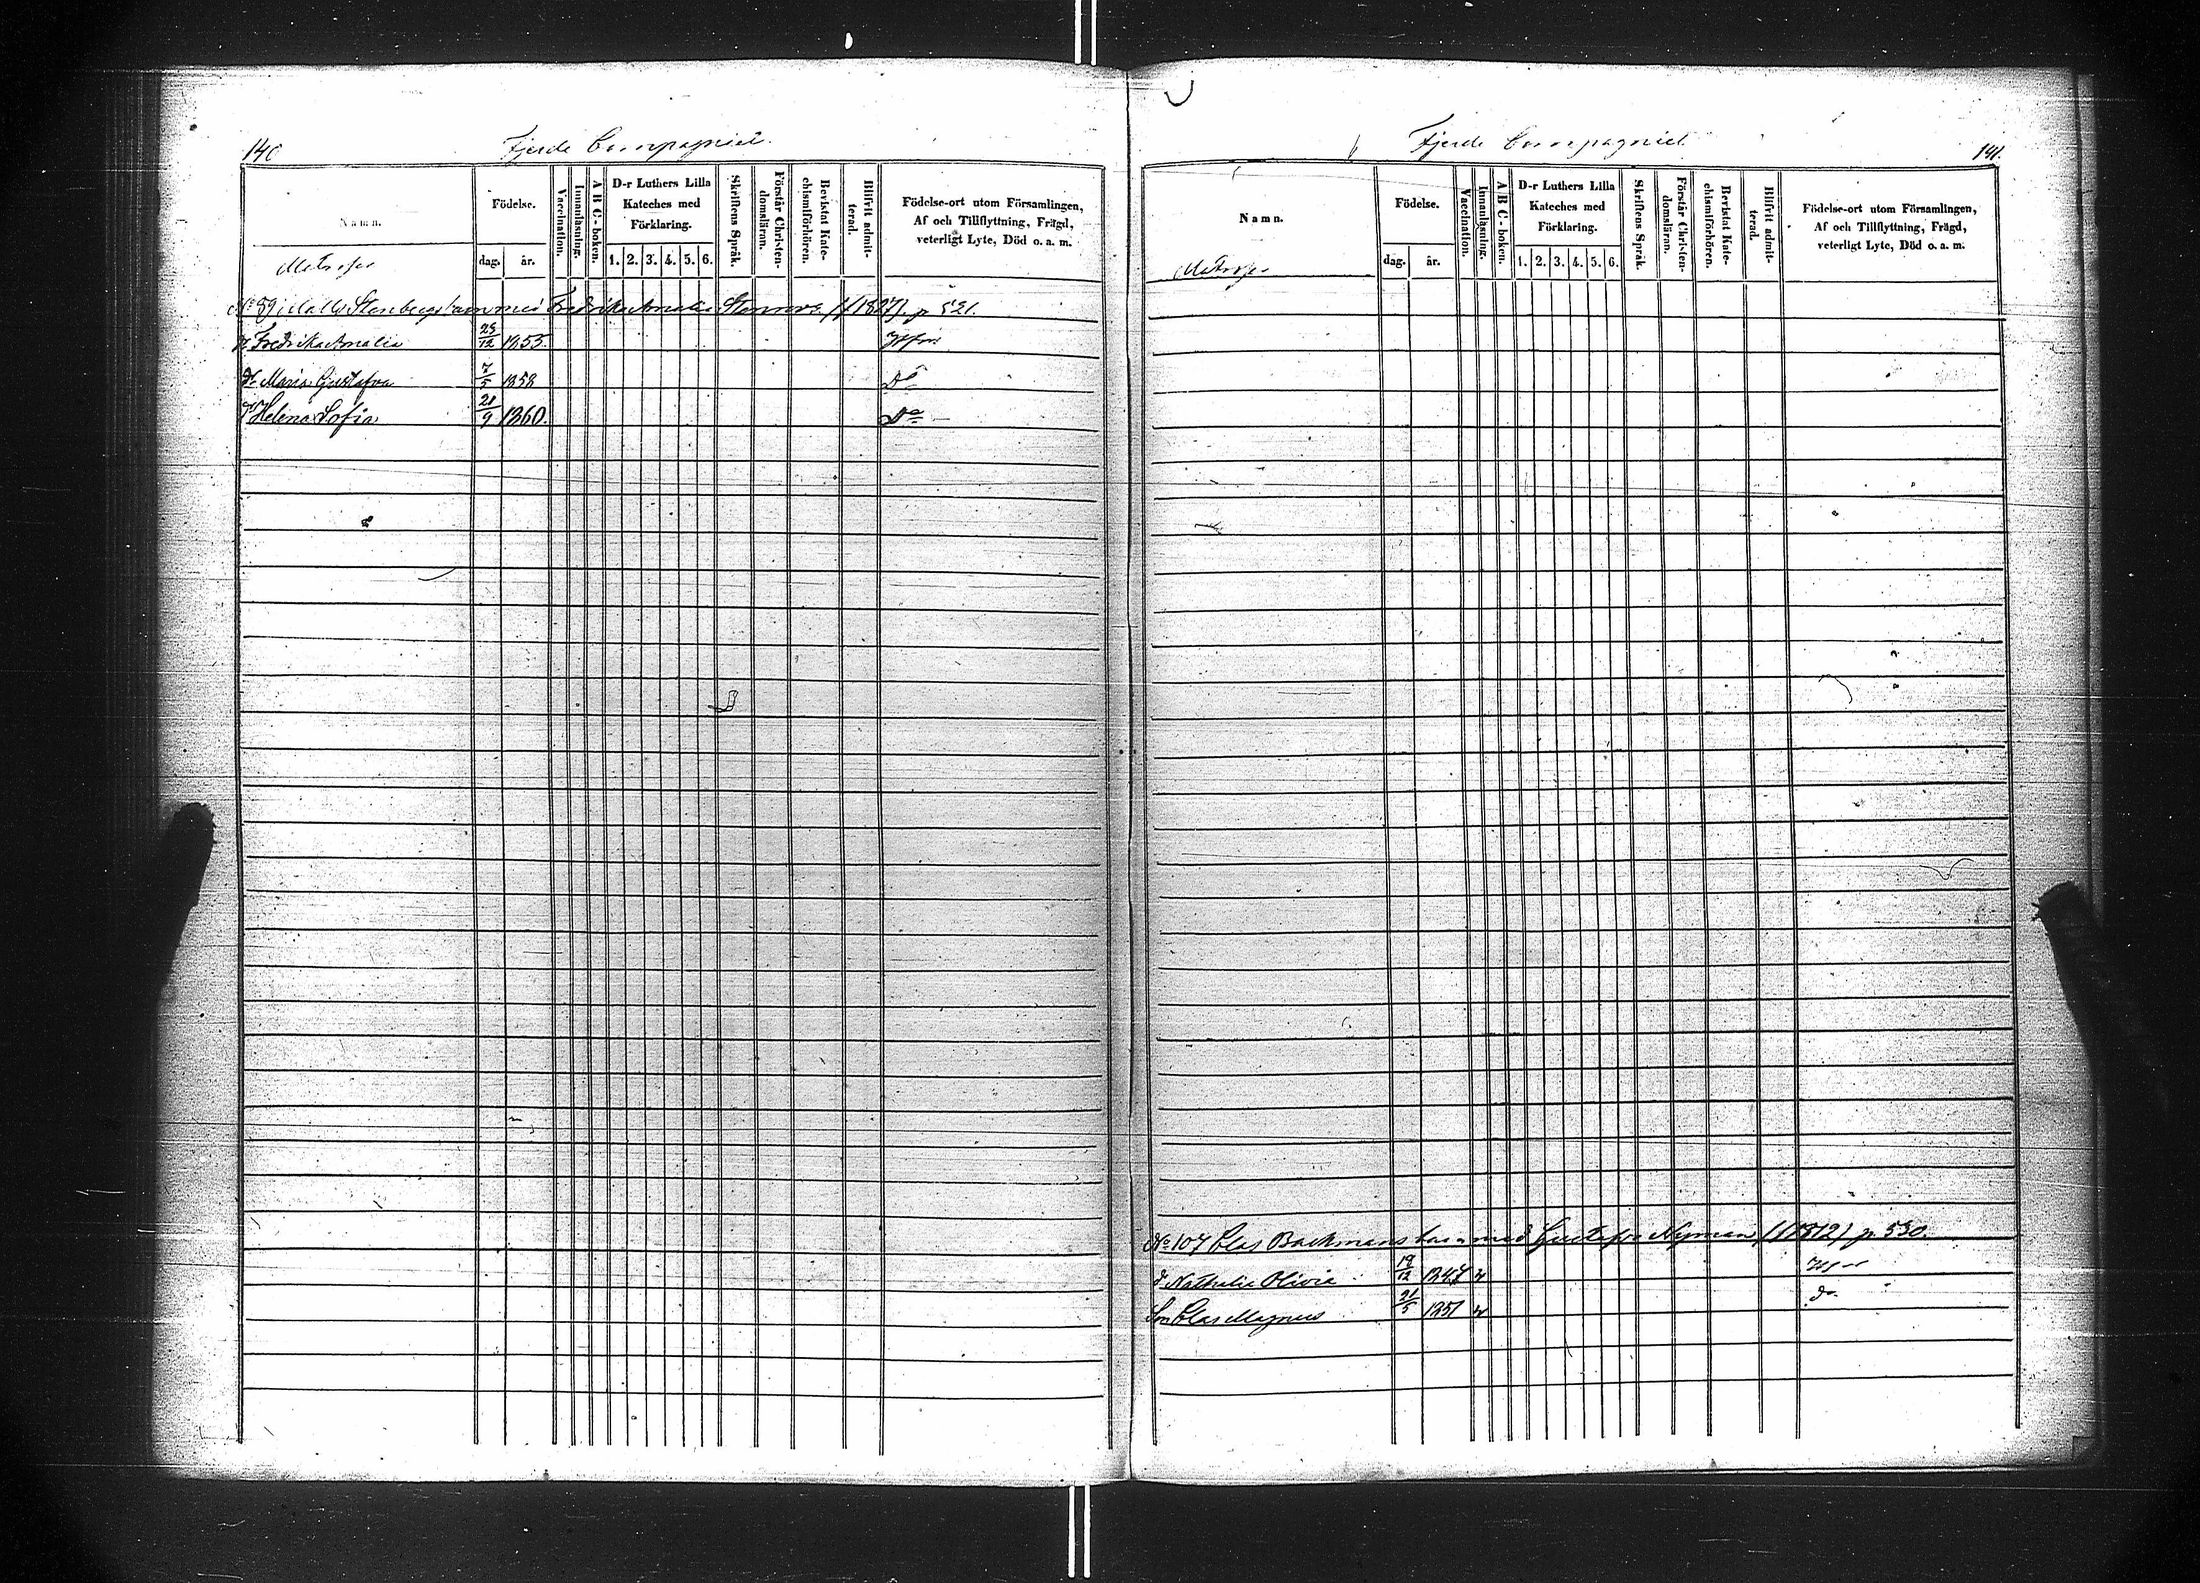 140
Fjerde Compagniet.
Namn.
Matroser
Födelse.
dag. år.
Vaccination.
Innanläsning.
A B C-boken.
D-r Luthers Lilla
Kateches med
Förklaring.
1. 2. 3. 4. 5. 6.
Skriftens Språk.
Förstår Christen-
domsläran.
Bevistat Kate-
chismiförhören.
Blifvit admit-
terad.
Födelse-ort utom Församlingen,
Af och Tillflyttning, Frägd,
veterligt Lyte, Död o. a. m.
No 89 Stenbergs barn med Fredrika Amalia (f 1827) p 521.
d Fredrika Amalia 23/12 1855. Hfors
dr Maria Gustafva 7/5 1858 Do
dr Helena Sofia 21/9 1860. Do
Fjerde Compagniet.
141.
Namn.
Matroser
Födelse.
dag. år.
Vaccination.
Innanläsning.
A B C-boken.
D-r Luthers Lilla
Kateches med
Förklaring.
1. 2. 3. 4. 5. 6.
Skriftens Språk.
Förstår Christen-
domsläran.
Bevistat Kate-
chismiförhören.
Blifvit admit-
terad.
Födelse-ort utom Församlingen,
Af och Tillflyttning, Frägd,
veterligt Lyte, Död o. a. m.
No 107 Clas Backmans barn med Gustafva Nyman (f 1812) p. 530.
dr Nathalia Olivia 18/12 1847 v Hfors
Son Clas Magnus 21/5 1851 v do